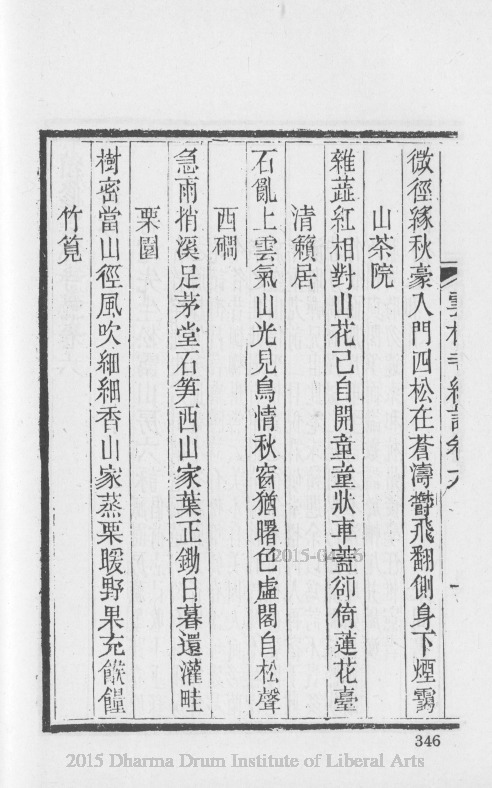 微徑緣秋豪入門四松在蒼濤鬱飛翻側身下煙靄
山茶院
雜蘂紅相對山花已自開童童狀車蓋卻倚蓮花臺
清籟居
石亂上雲氣山光見鳥情秋窗猶曙色虛閣自松聲
西磵
急雨捎溪足茅堂石筍西山家葉正鋤日暮還灌畦
栗園
樹密當山徑風吹細細香山家蒸栗暖野果充餱糧
竹筧
346
2015-04
2015 Dharma Drum Institute of Liberal Arts